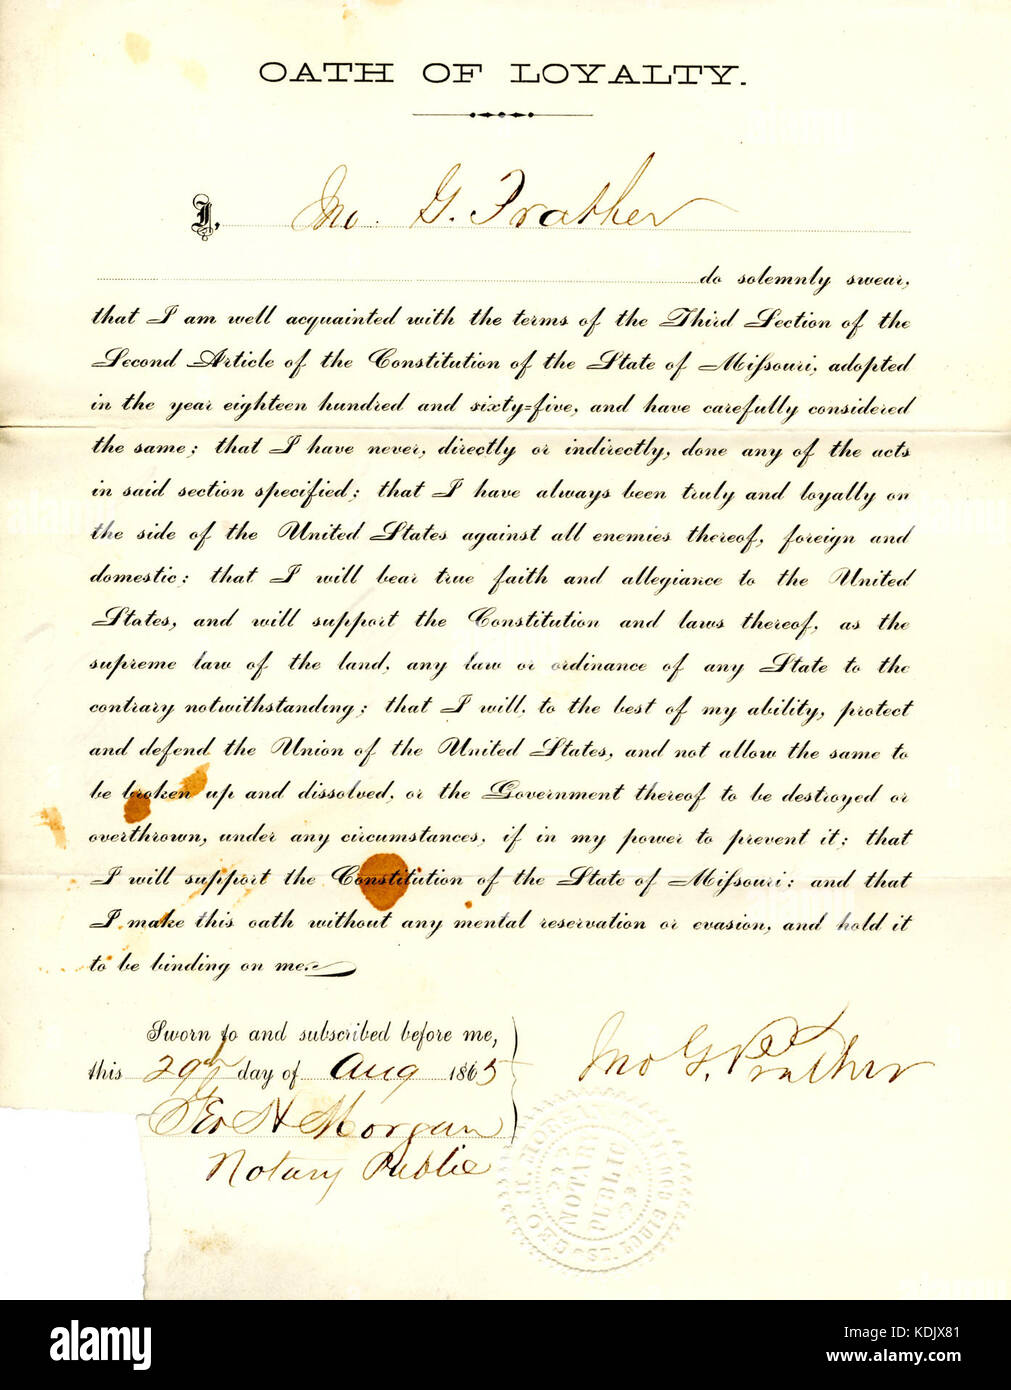 OATH OF LOYALTY.
I, Jno. G. Prather
do solemnly swear,
that I am well acquainted with the terms of the Third Section of the
Second Article of the Constitution of the State of Missouri, adopted
in the year eighteen hundred and sixty=five, and have carefully considered
the same; that I have never, directly or indirectly, done any of the acts
in said section specified; that I have always been truly and loyally on
the side of the United States against all enemies thereof, foreign and
domestic; that I will bear true faith and allegiance to the United
States, and will support the Constitution and laws thereof, as the
supreme law of the land, any law or ordinance of any State to the
contrary notwithstanding; that I will, to the best of my ability, protect
and defend the Union of the United States, and not allow the same to
be broken up and dissolved, or the Government thereof to be destroyed or
overthrown, under any circumstances, if in my power to prevent it; that
I will support the Constitution of the State of Missouri; and that
I make this oath without any mental reservation or evasion, and hold it
to be binding on me.
Sworn to and subscribed before me,
this 29th day of Aug 1865
Geo H Morgan
Notary Public
Jno G. Prather
GEO. H. MORGAN
NOTARY
PUBLIC
ST. LOUIS
alamy
Image ID: KDJX81
www.alamy.com